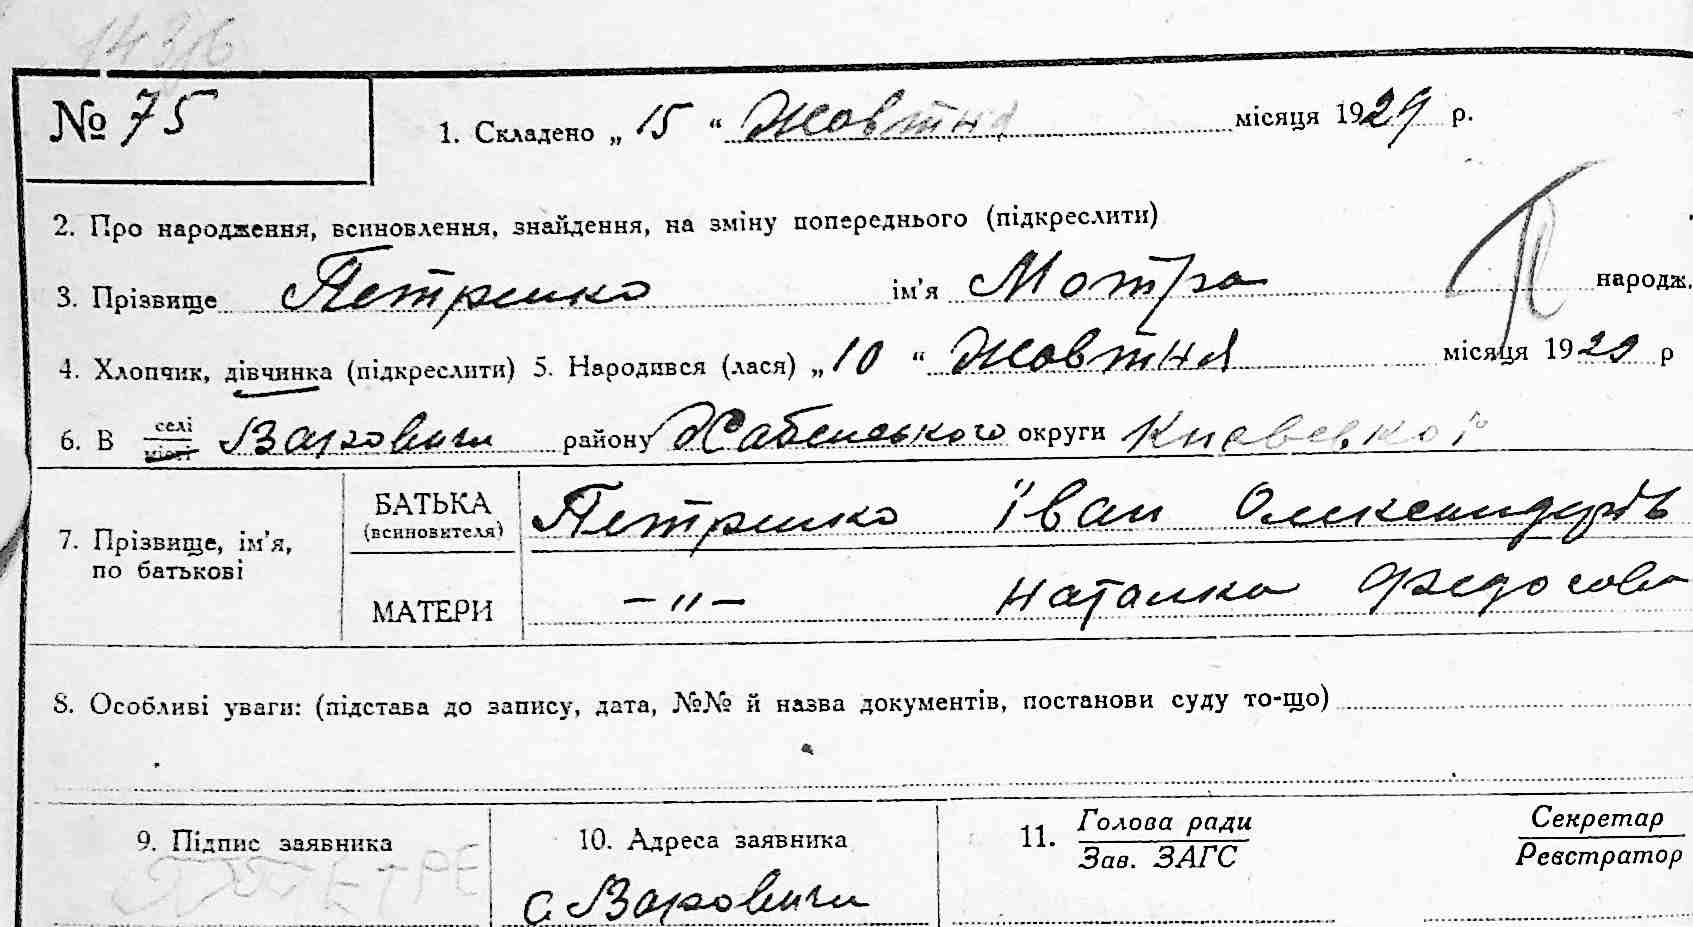 1436
№ 75
1. Складено „ 15 “ Жовтня місяця 1929 р.
2. Про народження, всиновлення, знайдення, на зміну попереднього (підкреслити)
3. Прізвище Петренко ім'я Мотря народж.
4. Хлопчик, дівчинка (підкреслити) 5. Народився (лася) „ 10 “ Жовтня місяця 1929 р
6. В селі місті Варовичи району Хабенського округи Киевської
7. Прізвище, ім'я, по батькові
БАТЬКА (всиновителя) Петренко Іван Олександрів
МАТЕРИ –„– Наталка Федосова
8. Особливі уваги: (підстава до запису, дата, №№ й назва документів, постанови суду то-що)
9. Підпис заявника
10. Адреса заявника
с. Варовичи
11. Голова ради Секретар
Зав. ЗАГС Реєстратор